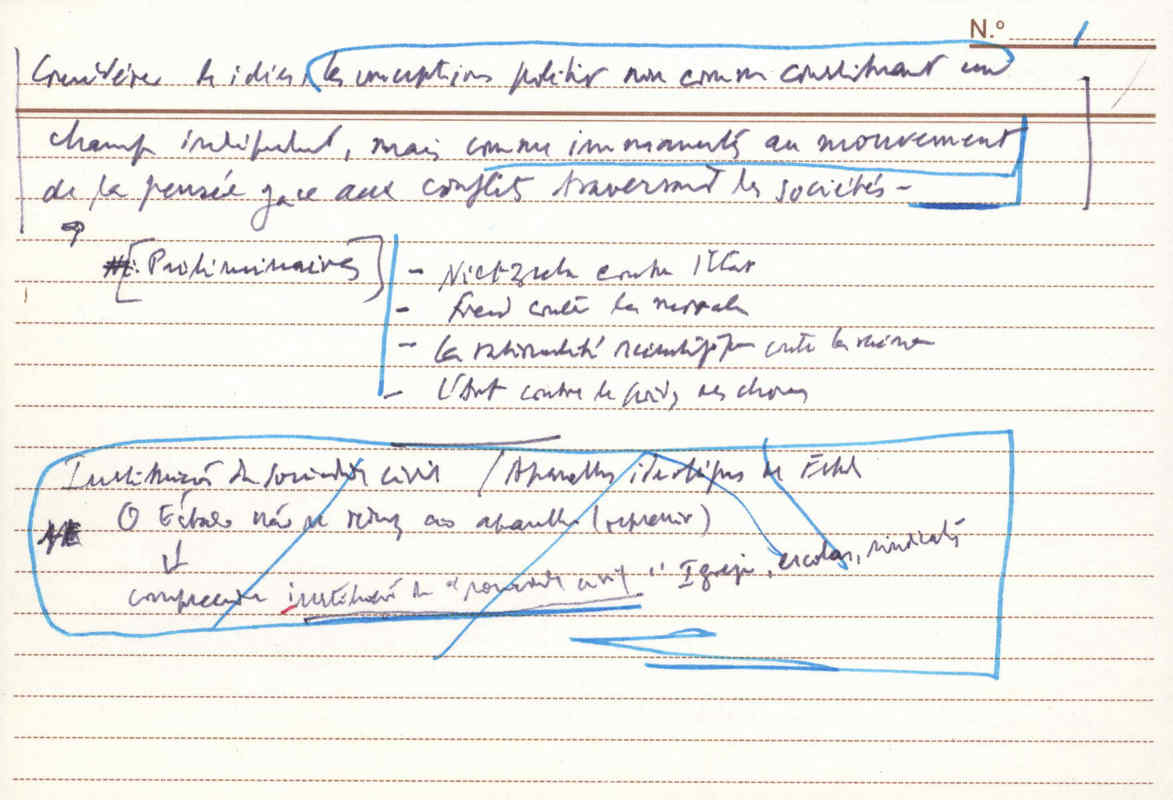 N.º 1
Considérer les idées, les conceptions politiques non comme constituant un
champ indépendant, mais comme immanents au mouvement
de la pensée face aux conflits traversant les sociétés -
[Préliminaires]
- Nietzsche contre l'État
- Freud contre la morale
- La rationalité scientifique contre la
- L'Art contre le poids des choses
Instituições da sociedade civil / Aparelhos ideológicos de Estado
O Estado não se reduz ao aparelho (repressivo)
compreende instituições da "sociedade civil" Igreja, escolas, sindicatos